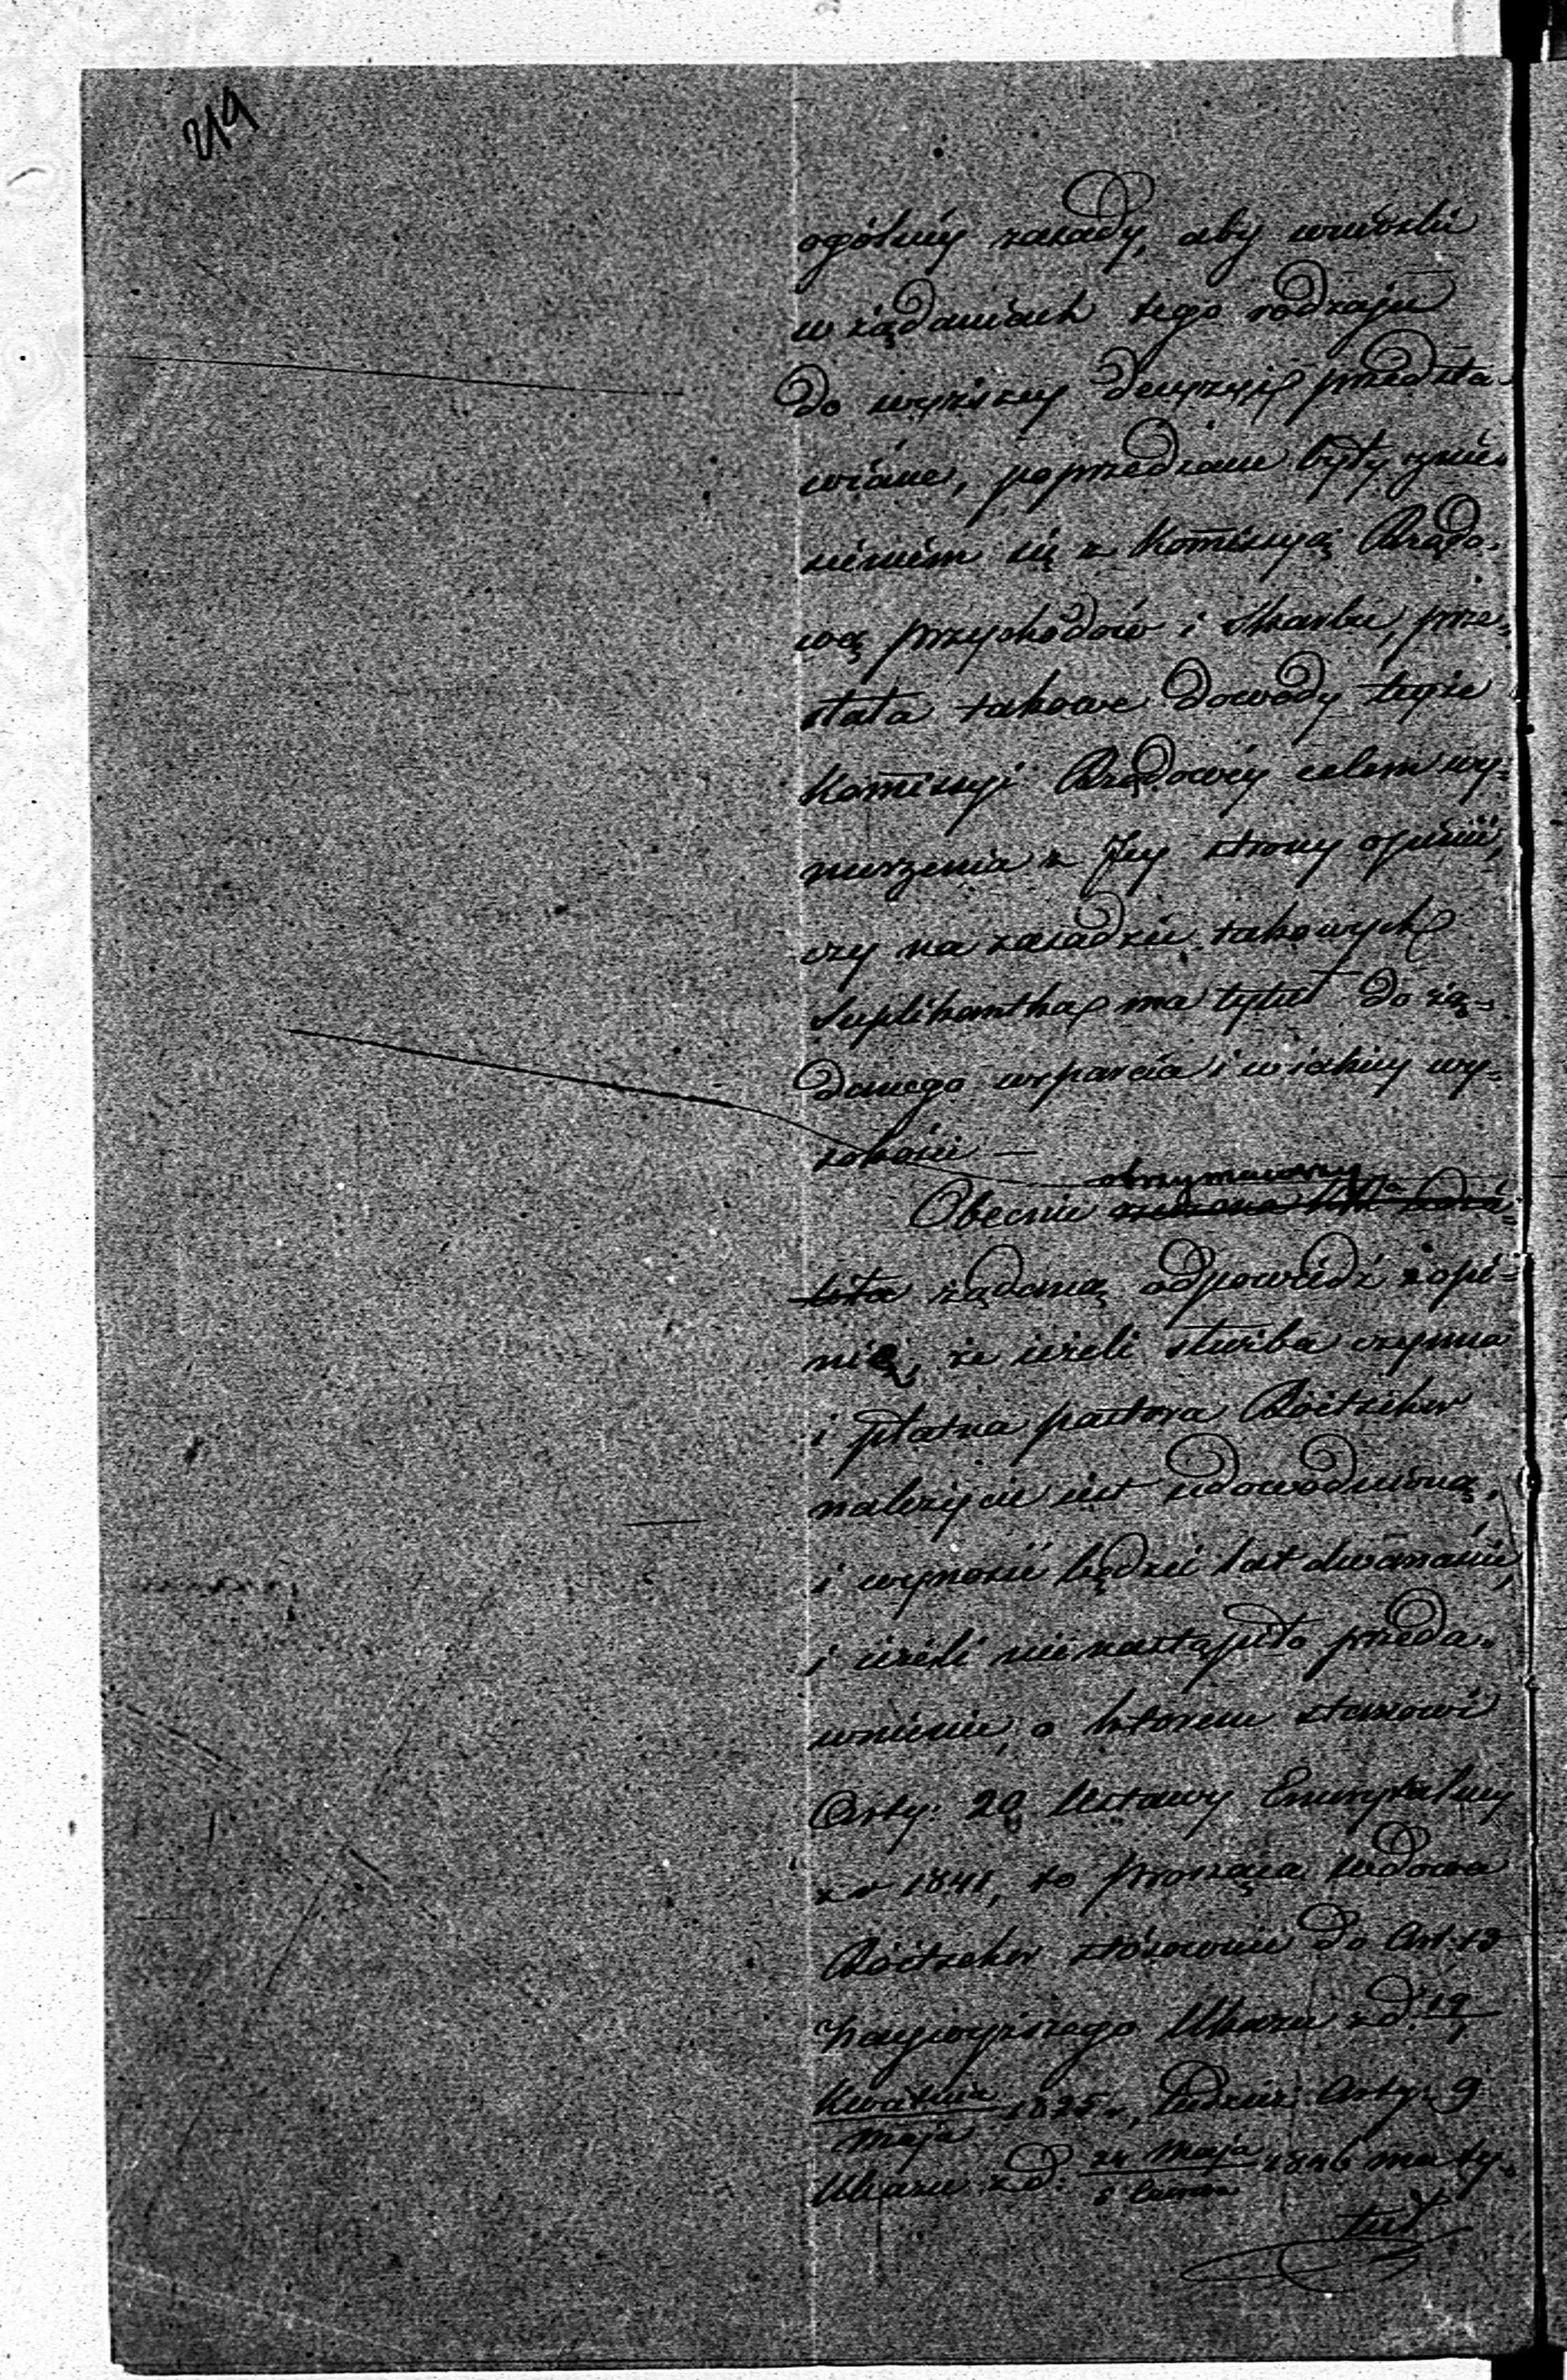 219
ogólnéy zasady, aby wnioski
w żądaniach tego rodzaju
do wyższey decyzyi przedsta-
wiane, poprzedzane były znie-
sieniem się z Kommissyą Rządo-
wą przychodów i Skarbu, prze-
słała takowe dowody teyże
Kommissyi Rządowéy celem wy-
nurzenia z Jey strony opinii,
czy na zasadzie takowych
Suplikantka ma tytuł do żą-
danego wsparcia i w iakiey wy-
sokości —
otrzymawszy
Obecnie
żądaną odpowiedź z opi-
nią, że ieżeli służba czynna
i płatna pastora Röitscher
należycie iest udowodnioną,
i wynosić będzie lat dwanaście,
i ieżeli nienastąpiło przeda-
wnienie, o którem stanowi
Arty: 20 Ustawy Emerytalney
z r 1841, to prosząca wdowa
Röitscher stósownie do Art. 13
Naywyższego Ukazu z d. 19/1
Kwietnia/Maja 1835 r, tudzież Arty: 9
Ukazu z d. 24 Maja/5 Czerwca 1846 ma ty-
tuł